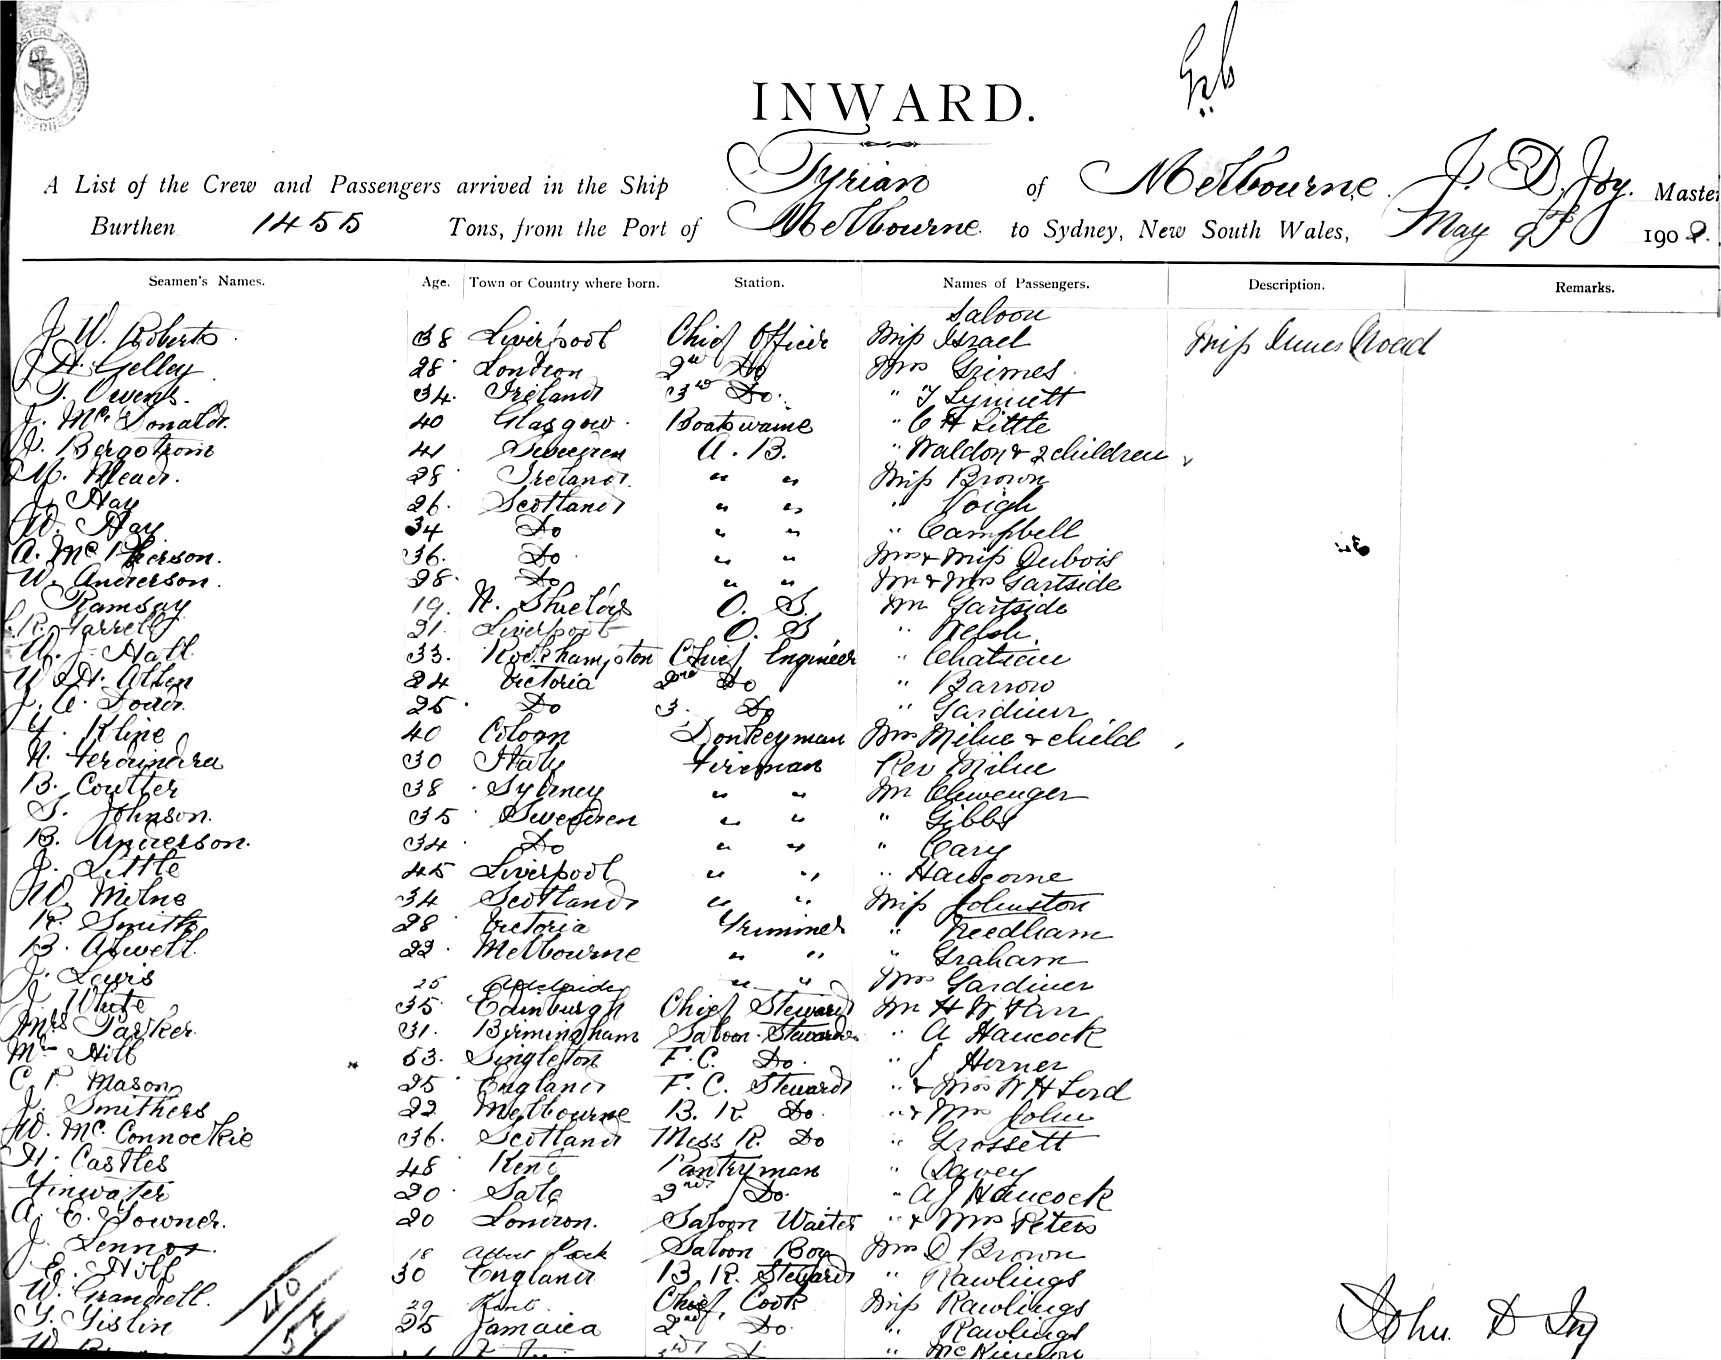 INWARD.
A List of the Crew and Passengers arrived in the Ship Tyrian of Melbourne J. D. Joy. Master
Burthen 1455 Tons, from the Port of Melbourne to Sydney, New South Wales, May 190
Seamen's Names. Age. Town or Country where born. Station. Names of Passengers. Description. Remarks.
Saloon
J. W. Roberts 38 Liverpool Chief Officer Miss Israel Miss
J. H. Gelley 28 London 2nd Do Mrs Grimes
T. Owens. 34 Ireland 3rd Do. "
J. McDonald. 40 Glasgow Boatswaine " C H Little
Bergstrom 41 Sweeden A. B. " Waldon & 2 children
M. Mead. 28 Ireland. " " Miss Brown
J. Hay 26. Scotland " " " Voigh
W. Hay 34 Do " " " Campbell
A. McPherson. 36. Do " " Mrs & Miss Dubois
W. Anderson. 28. Do " " Mr & Mrs Gartside
Ramsay 19. N. Shields O. S. Mr Gartside
R. Farrell 21. Liverpool O. S " Welsh
W. J. Hall 33. Rockhampton Chief Engineer " Chateau
W. H. Allen 24 Victoria 2nd Do " Barrow
J. C. Dodd. 25 Do 3. Do " Gardiner
Y. Kline 40 Donkeyman Mrs Milne & child
N. Ferdindra 30 Italy Fireman Rev Milne
B. Coutter 38 Sydney " " Mr Clewenger
S. Johnson. 35 Sweeden " " " Gibbs
B. Anderson. 34 Do " " " Cary
J. Little 45 Liverpool " " "
W. Milne 34 Scotland " " Miss Johnston
R. Smith 28 Victoria Trimmer " Needham
B. Atwell 22 Melbourne " " " Graham
J. Lewis 25 Adelaide " " Mrs Gardiner
J. White 35 Edinburgh Chief Steward Mr H W Karr
Mrs Parker 31. Birmingham Saloon Stewardess " A Hancock
Mrs Hill 53. Singleton F. C. Do. " J Horner
C. F. Mason 25 England F. C. Steward " & Mrs W H Lord
J. Smithers 22 Melbourne B. R. Do. " & Mrs John
W. McConnockie 36. Scotland Mess R. Do " Grossett
H. Castles 48 Kent Pantryman " Davey
Finwater 20 Sale 2nd Do. " A J Hancock
A. E. Downer. 20 London. Saloon Waiter " & Mrs Peters
J. Lennox 18 Albert Park Saloon Boy Mrs D Brown
E. Hill 30 England B. R. Steward " Rawlings
W. Grandell. 29 Kent. Chief Cook Miss Rawlings
Y. Gislin 25 Jamaica 2nd Do. " Rawlings
W. McKinnon
John D Joy